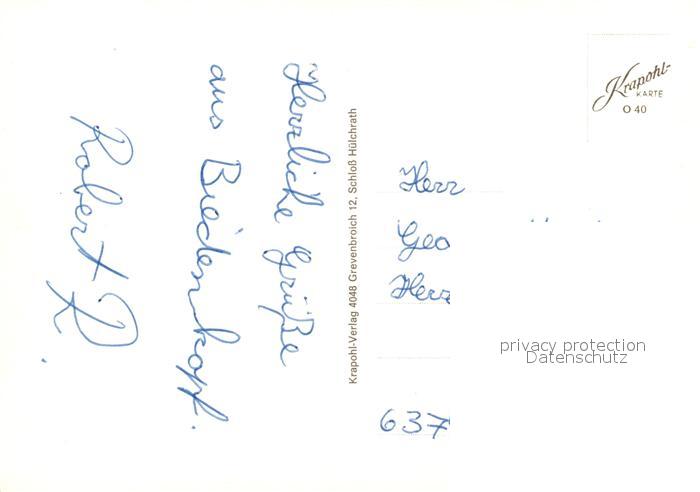 Herzliche Grüße
aus Biedenkopf.
Robert R.
Krapohl-Verlag 4048 Grevenbroich 12, Schloß Hülchrath
Krapohl-
KARTE
O 40
Herr
Geo
Herr
637
privacy protection
Datenschutz